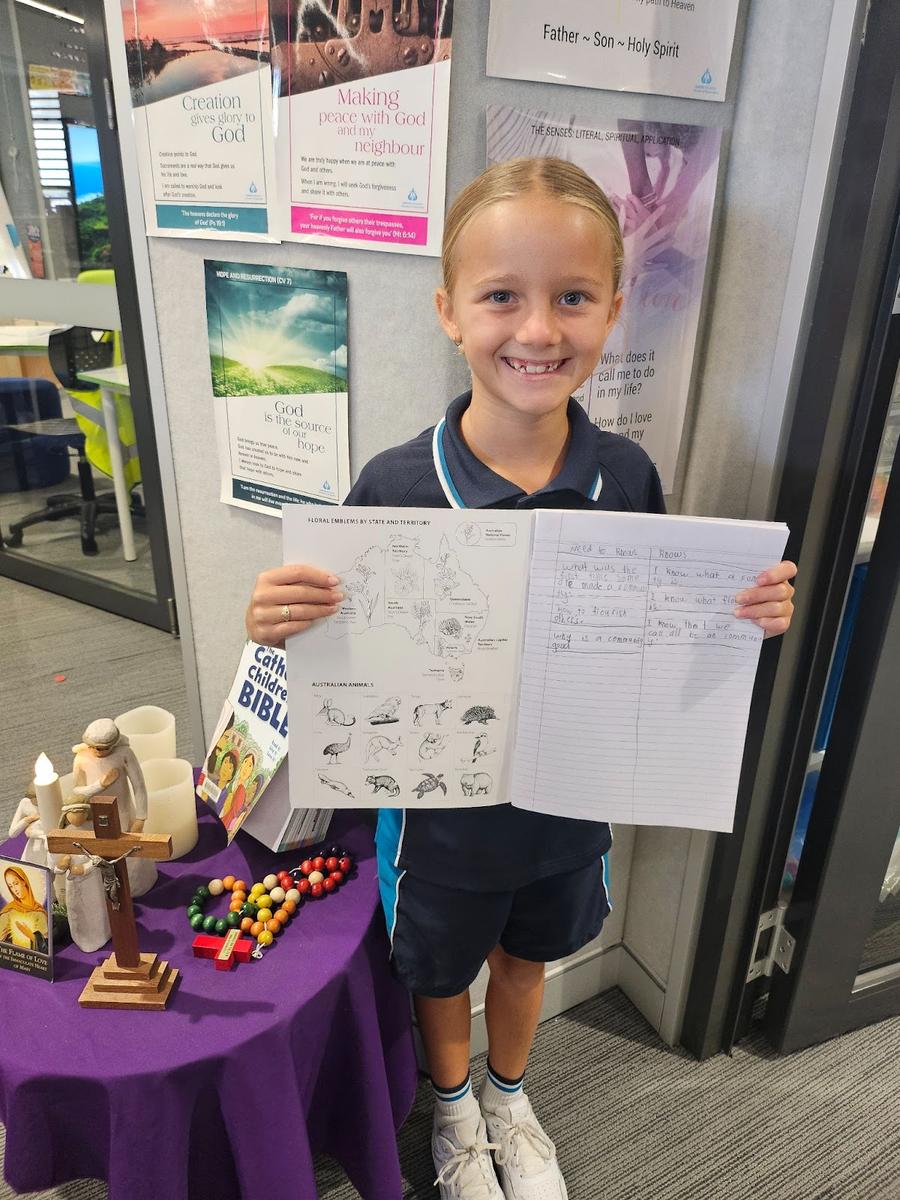 my path to Heaven
Father ~ Son ~ Holy Spirit
Creation
gives glory to
God
Creation points to God.
Sacraments are a real way that God gives us
his life and love.
I am called to worship God and look
after God's creation.
'The heavens declare the glory
of God' (Ps 19:1)
Making
peace with God
and my
neighbour
We are truly happy when we are at peace with
God and others.
When I am wrong, I will seek God's forgiveness
and share it with others.
'For if you forgive others their trespasses,
your heavenly Father will also forgive you' (Mt 6:14)
THE SENSES: LITERAL, SPIRITUAL, APPLICATION
What does it
call me to do
in my life?
How do I love
and my
HOPE AND RESURRECTION (CV 7)
God
is the source
of our
hope
God brings us true peace.
'I am the resurrection and the life; he who
FLORAL EMBLEMS BY STATE AND TERRITORY
Australian
National Flower
Northern
Territory
Queensland
Western
Australia
South
Australia
New South
Wales
Australian Capital
Territory
Victoria
Tasmania
AUSTRALIAN ANIMALS
Need to Knows
Knows
What was the
first time some
one made a commun
ty.
how to flourish
others.
why is a community
good
I know what a
ty is
I know what
is.
I know that we
can all be as commun
The
Catho
Children
BIBLE
THE FLAME OF LOVE
OF THE IMMACULATE HEART
OF MARY